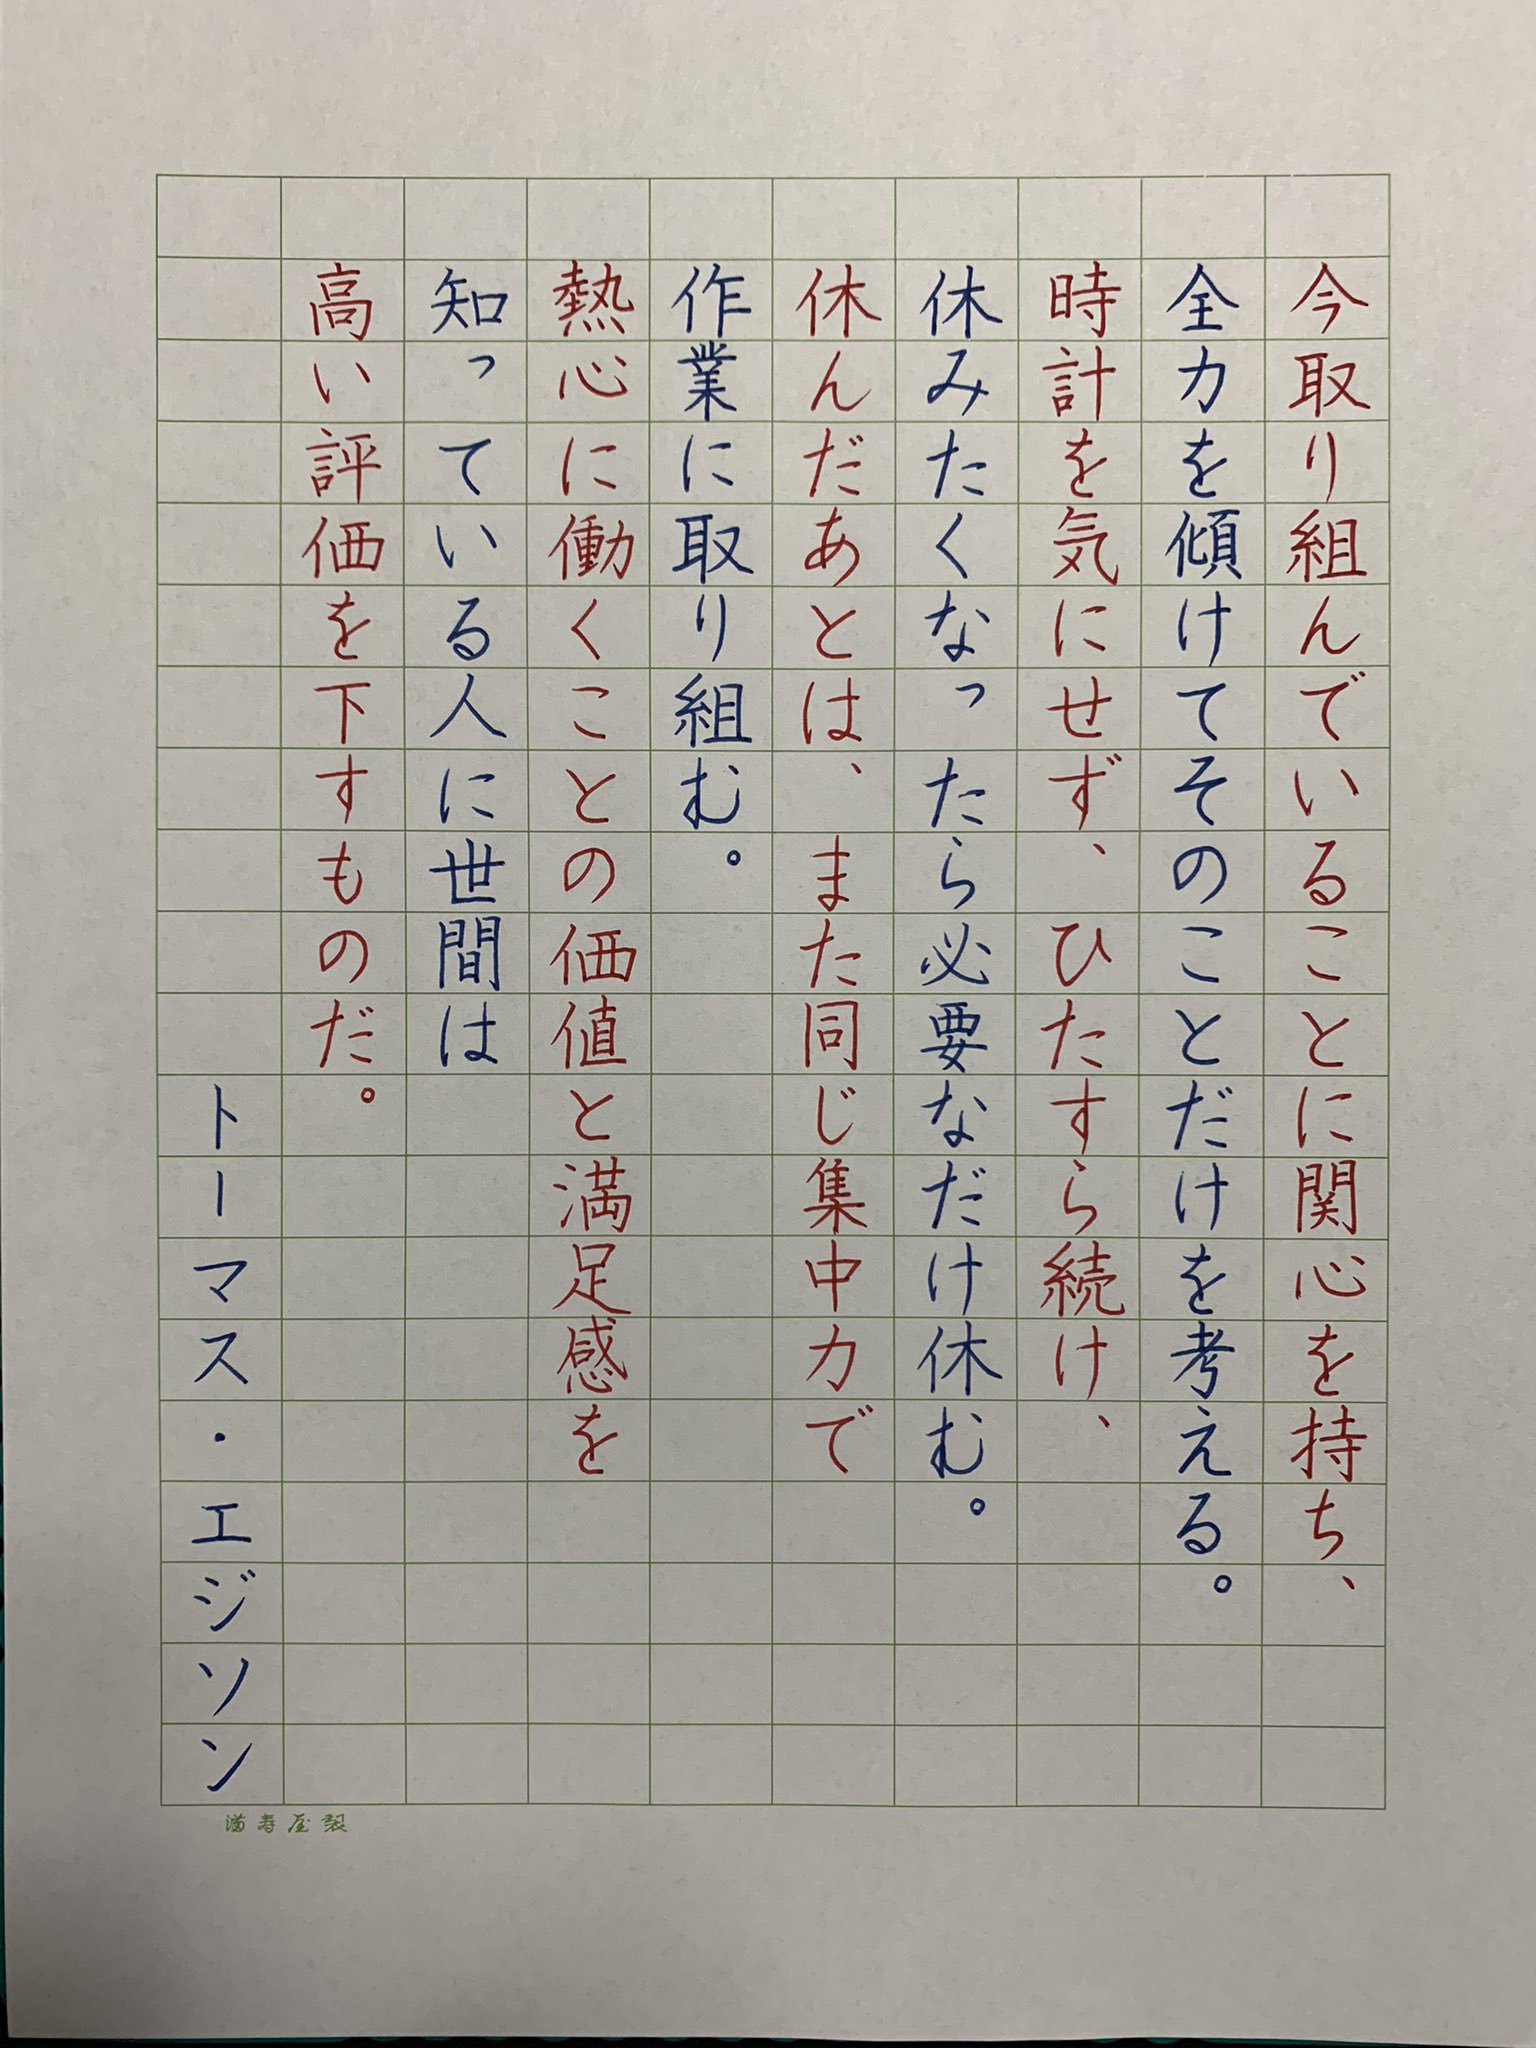 今取り組んでいることに関心を持ち、
全力を傾けてそのことだけを考える。
時計を気にせず、ひたすら続け、
休みたくなったら必要なだけ休む。
休んだあとは、また同じ集中力で
作業に取り組む。
熱心に働くことの価値と満足感を
知っている人に世間は
高い評価を下すものだ。
トーマス・エジソン
満寿屋製